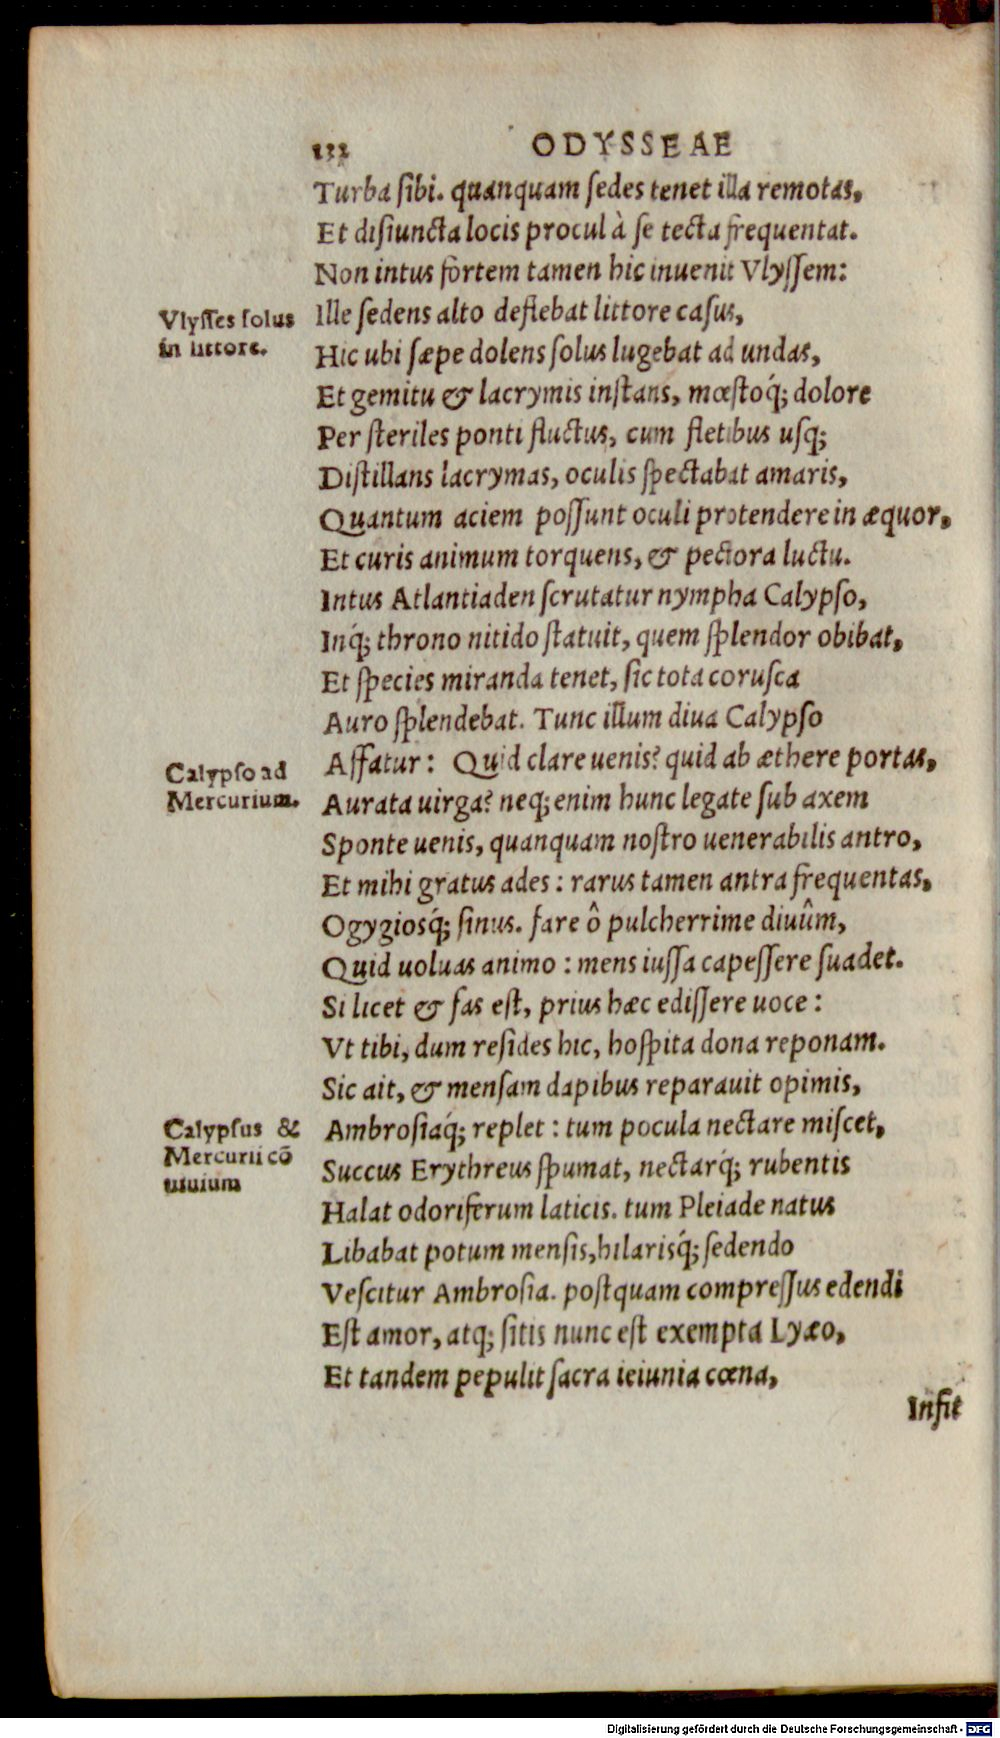 132 ODYSSEAE
Turba sibi. quanquam sedes tenet illa remotas,
Et disiuncta locis procul à se tecta frequentat.
Non intus fortem tamen hic inuenit Vlyssem:
Vlysses solus
in littore.
Ille sedens alto deflebat littore casus,
Hic ubi sæpe dolens solus lugebat ad undas,
Et gemitu & lacrymis instans, mœstoq́; dolore
Per steriles ponti fluctus, cum fletibus usq;
Distillans lacrymas, oculis spectabat amaris,
Quantum aciem possunt oculi protendere in æquor,
Et curis animum torquens, & pectora luctu.
Intus Atlantiaden scrutatur nympha Calypso,
Inq́; throno nitido statuit, quem splendor obibat,
Et species miranda tenet, sic tota corusca
Auro splendebat. Tunc illum diua Calypso
Calypso ad
Mercurium.
Affatur: Quid clare uenis? quid ab æthere portas,
Aurata uirga? neq; enim hunc legate sub axem
Sponte uenis, quanquam nostro uenerabilis antro,
Et mihi gratus ades: rarus tamen antra frequentas,
Ogygiosq́; sinus. fare ô pulcherrime diuûm,
Quid uoluas animo: mens iussa capessere suadet.
Si licet & fas est, prius hæc edissere uoce:
Vt tibi, dum resides hic, hospita dona reponam.
Sic ait, & mensam dapibus reparauit opimis,
Calypsus &
Mercurii cō
uiuium
Ambrosiaq́; replet: tum pocula nectare miscet,
Succus Erythreus spumat, nectarq́; rubentis
Halat odoriferum laticis. tum Pleiade natus
Libabat potum mensis, hilarisq́; sedendo
Vescitur Ambrosia. postquam compressus edendi
Est amor, atq; sitis nunc est exempta Lyæo,
Et tandem pepulit sacra ieiunia cœna,
Infit
Digitalisierung gefördert durch die Deutsche Forschungsgemeinschaft - DFG